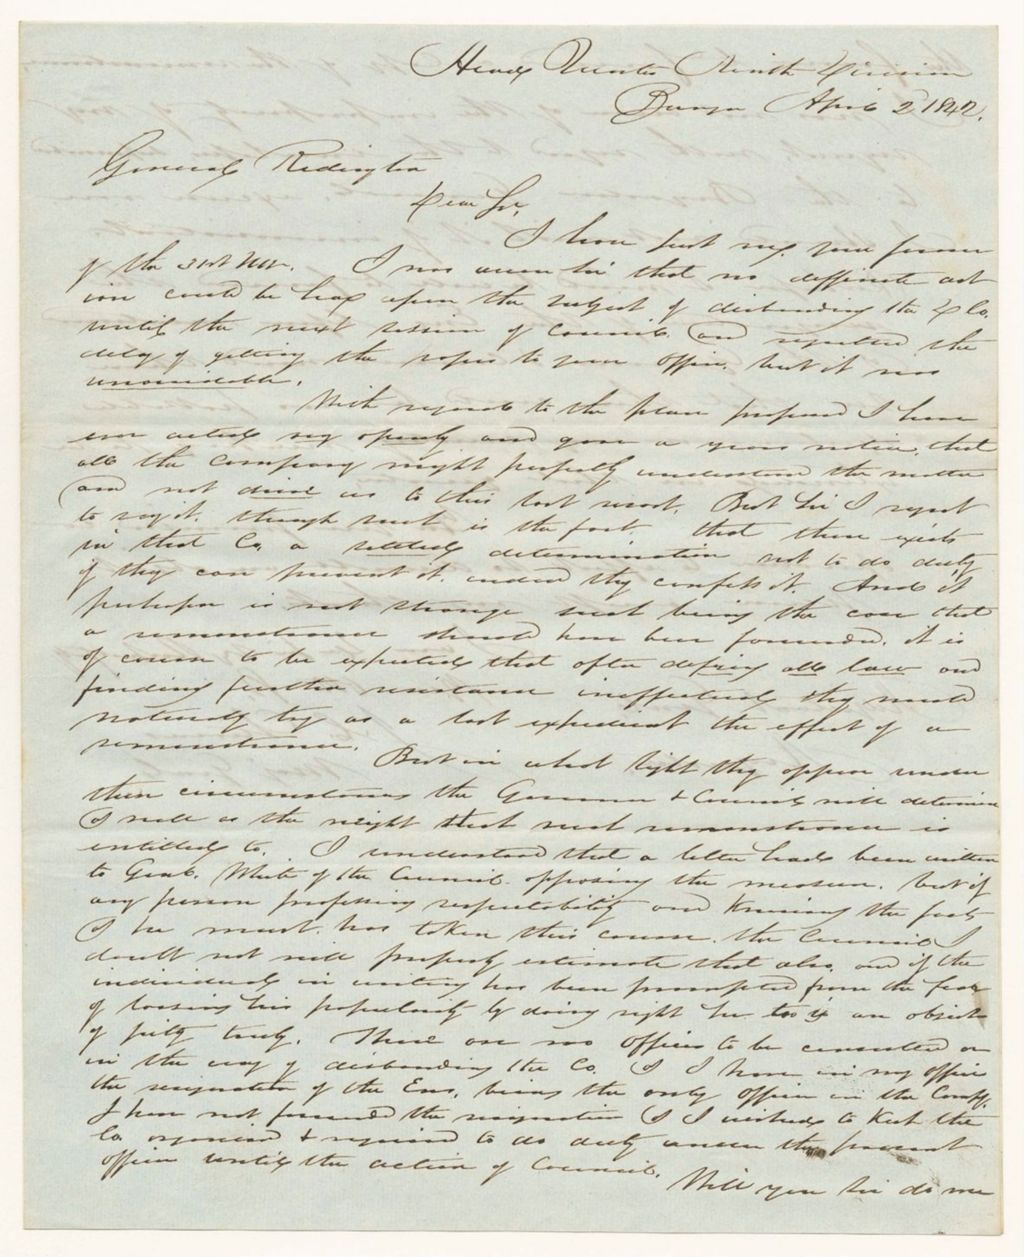 Head Quarters Ninth Division
Bangor April 2d 1842.
General Redington
Dear Sir,
I have just recd. your favour
of the 31st Ult. I was aware Sir that no deffinate act
ion could be had upon the subject of disbanding the D Co.
until the next session of Council and regretted the
delay of getting the papers to your office. but it was
unavoidable.
With regard to the plan proposed I have
ever acted very openly and gave a years notice, that
all the company might perfectly understand the matter
and not drive us to this last resort. But Sir I regret
to say it, though such is the fact, that there exists
in that Co. a settled determination not to do duty
if they can prevent it, indeed they confess it. And it
perhaps is not strange such being the case that
a remonstrance should have been forwarded. it is
of course to be expected that after defying all law and
finding further resistance ineffectual they would
naturally try as a last expedient the effect of a
remonstrance.
But in what light they appear under
these circumstances the Governor & Council will determine
as well as the weight that such remonstrance is
entitled to. I understand that a letter had been written
to Genl. White of the Council opposing the measure. but if
any person professing respectability and knowing the facts
as he must, has taken this course, the Council I
doubt not will properly estimate that also, and if the
individual in writing has been prompted from the fear
of loosing his popularity by doing right he too is an object
of pity truly. There are no officers to be consulted or
in the way of disbanding the Co. as I have in my office
the resignation of the Ens. being the only officer in the Compy.
I have not forwarded the resignation as I wished to keep the
Co. organised & required to do duty under the present
officer until the action of Council.
Will you Sir do me